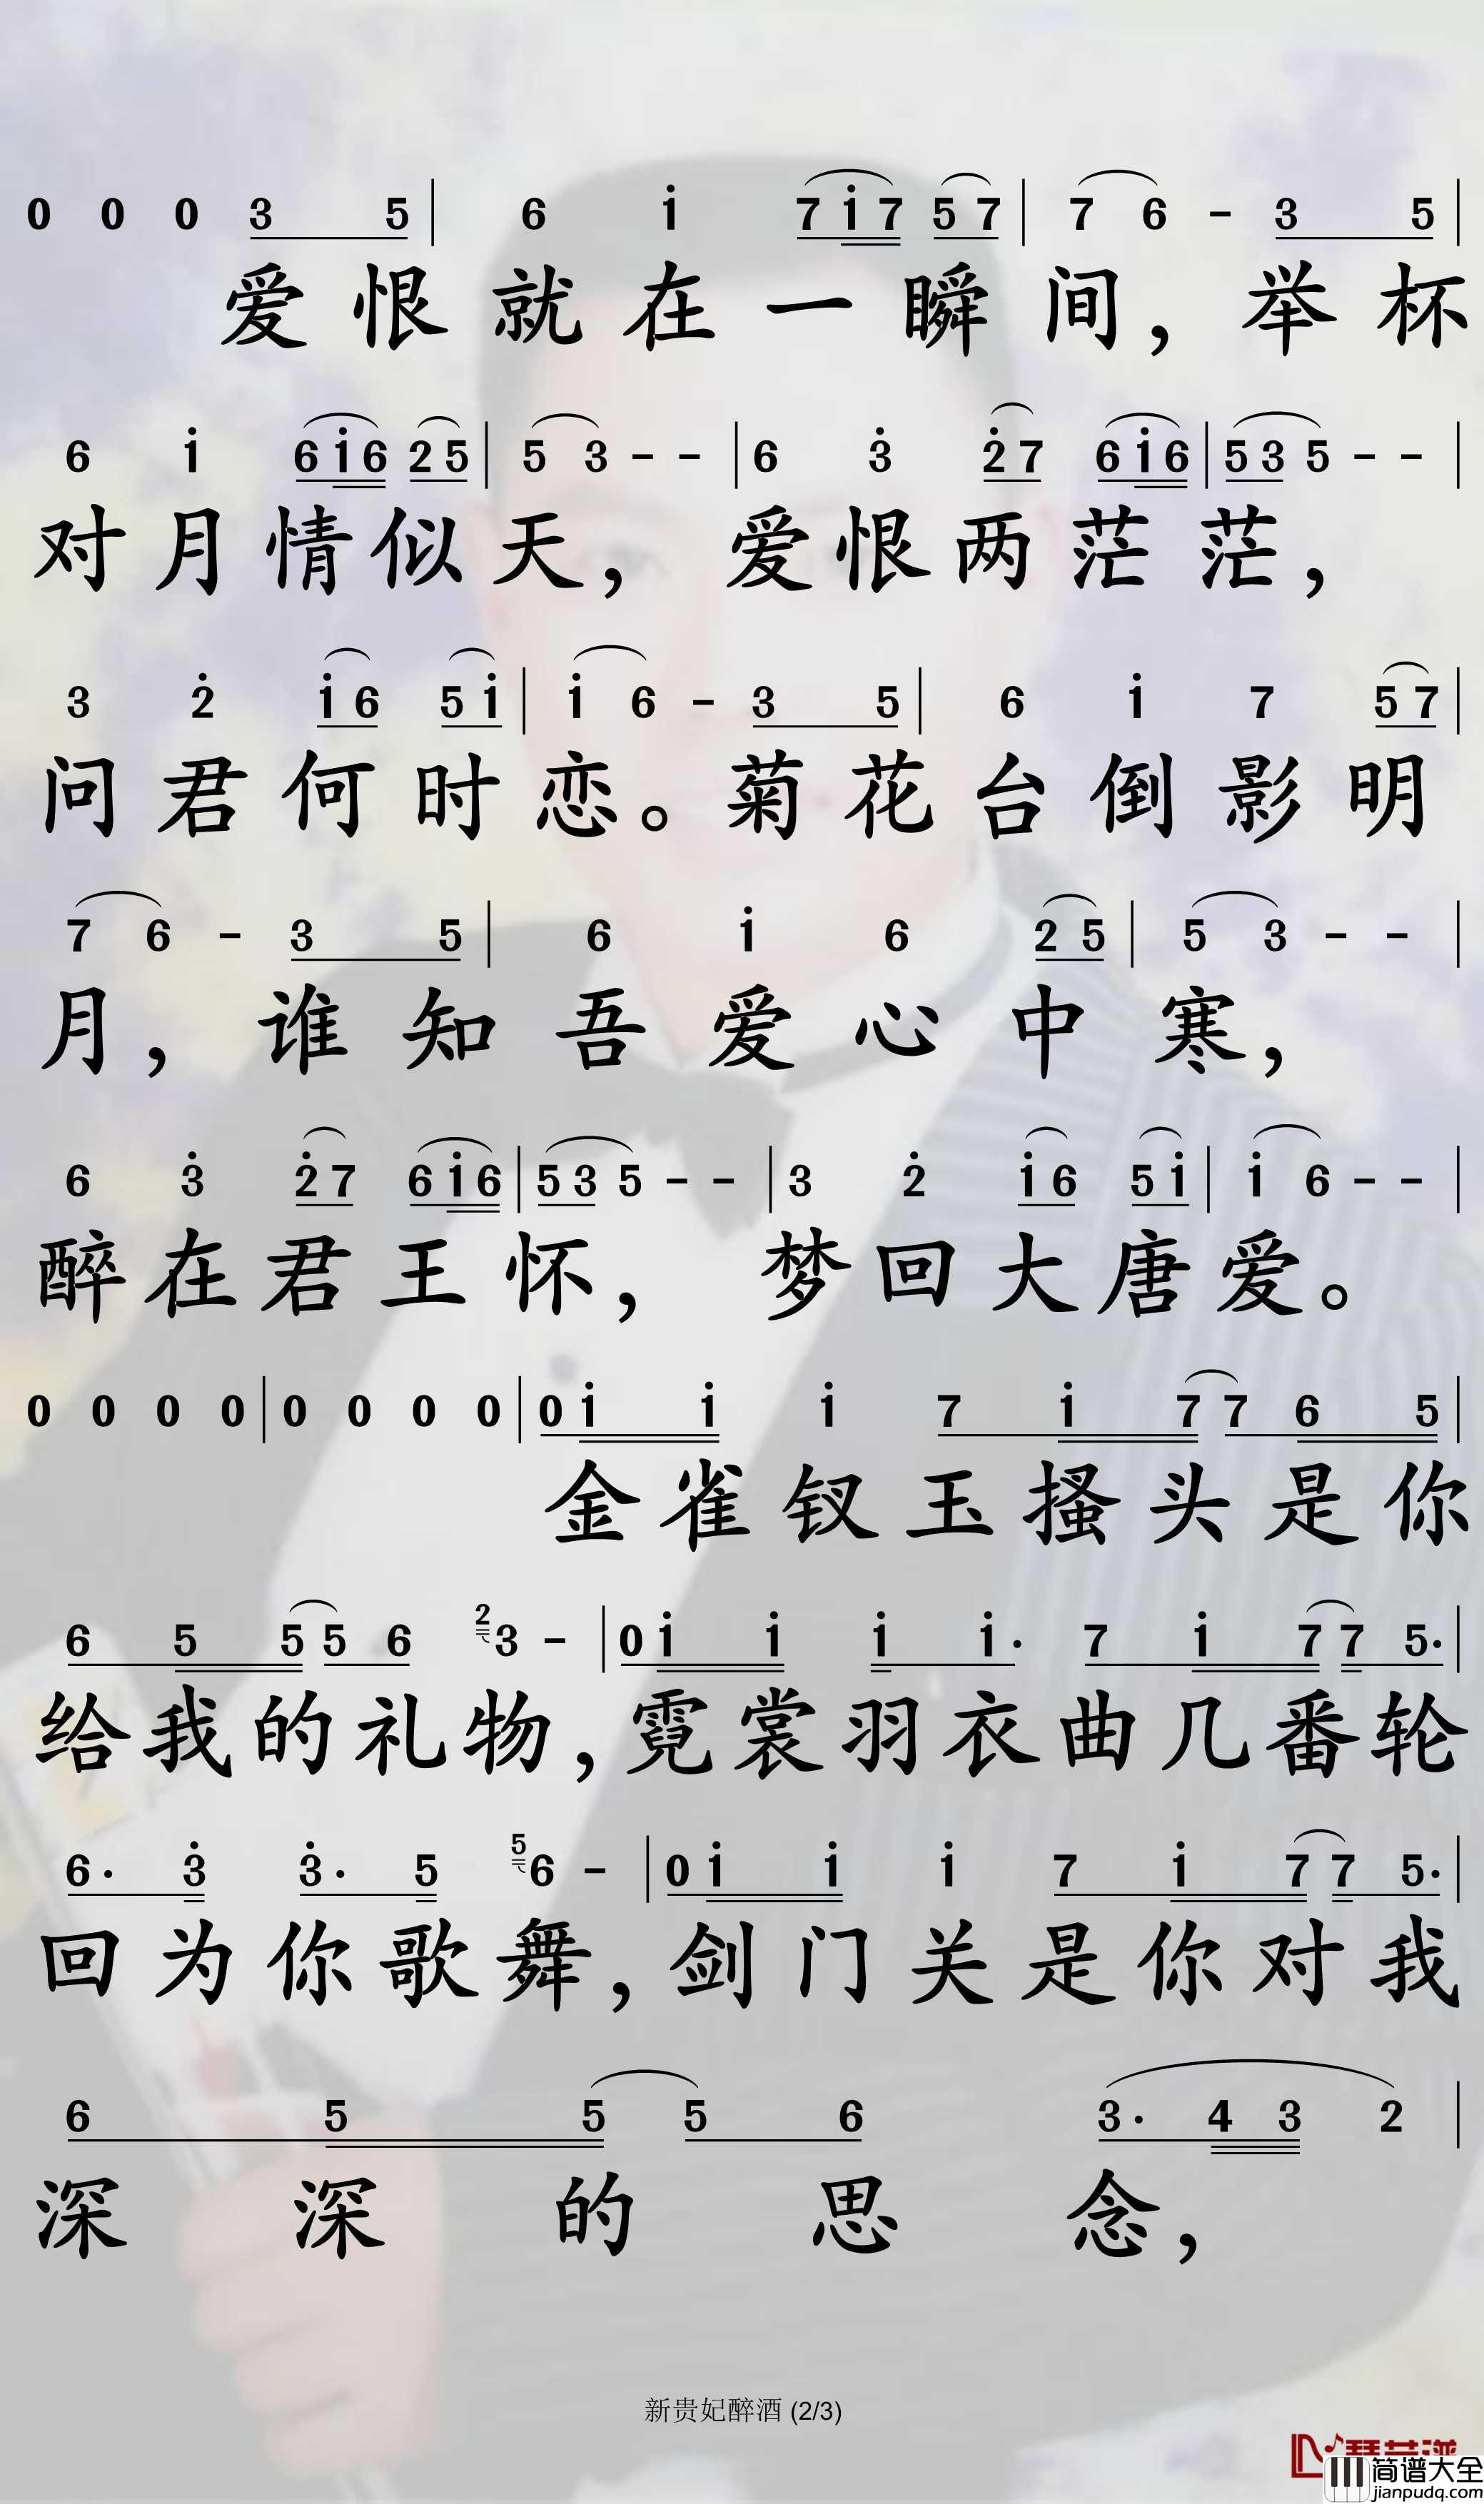 0 0 0 3 5 | 6 i 7 i 7 5 7 | 7 6 - 3 5 |
爱恨就在一瞬间，举杯
6 i 6 i 6 2 5 | 5 3 - - | 6 3̇ 2̇ 7 6 i 6 | 5 3 5 - - |
对月情似天，爱恨两茫茫，
3 2̇ i 6 5 i | i 6 - 3 5 | 6 i 7 5 7 |
问君何时恋。菊花台倒影明
7 6 - 3 5 | 6 i 6 2 5 | 5 3 - - |
月，谁知吾爱心中寒，
6 3̇ 2̇ 7 6 i 6 | 5 3 5 - - | 3 2̇ i 6 5 i | i 6 - - |
醉在君王怀，梦回大唐爱。
0 0 0 0 | 0 0 0 0 | 0 i i i 7 i 7 7 6 5 |
金雀钗玉搔头是你
6 5 5 5 6 2 3 - | 0 i i i i· 7 i 7 7 5· |
给我的礼物，霓裳羽衣曲几番轮
6· 3̇ 3̇· 5 5 6 - | 0 i i i 7 i 7 7 5· |
回为你歌舞，剑门关是你对我
6 5 5 5 6 3· 4 3 2 |
深深的思念，
新贵妃醉酒 (2/3)
简谱大全
jianpudq.com